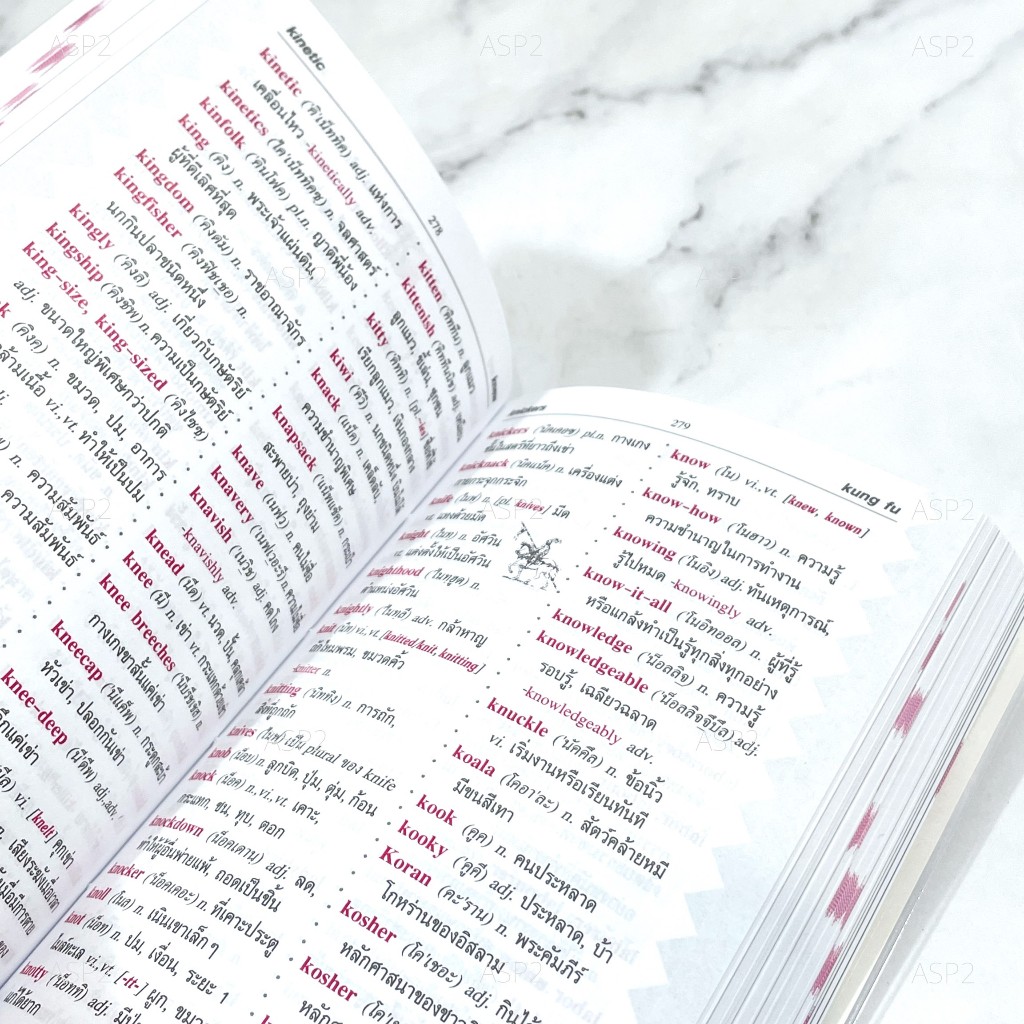 kinetic
278
kinetic (คิ'เน็ททิค) adj. แห่งการ
เคลื่อนไหว -kinetically adv.
kinetics (ไค'เน็ททิคซ) n. จลศาสตร์
kinfolk (คินโฟค) pl.n. ญาติพี่น้อง
king (คิง) n. พระเจ้าแผ่นดิน,
ผู้ที่ดีเลิศที่สุด
kingdom (คิงดัม) n. ราชอาณาจักร
kingfisher (คิงฟิช(เชอ) n.
นกกินปลาชนิดหนึ่ง
kingly (คิงลิ) adj. เกี่ยวกับกษัตริย์
kingship (คิงชิพ) n. ความเป็นกษัตริย์
king-size, king-sized (คิงไซซ)
adj. ขนาดใหญ่พิเศษกว่าปกติ
(คิงค) n. ขมวด, ปม, อาการ
vi.,vt. ทำให้เป็นปม
n. ความสัมพันธ์
ความสัมพันธ์
vi. [knelt] คุกเข่า
kitten (คิทเท็น) n. ลูกแมว
kittenish
ลูกแมว, ขี้เล่น, ซุกซน
kitty (คิททิ) n. [pl.
เรียกลูกแมว,
kiwi (คีวี) n.
knack (แน็ค) n.
ความชำนาญพิเศษ
knapsack (แน็พแซ็ค) n.
สะพายบ่า, ถุงย่าม
knave (เนฟว) n. คนไม่ซื่อ
knavery (เนฟเวอะริ) n.
knavish (เนวิช) adj. คดโกง
-knavishly adv.
knead (นีด) vt. นวด, ปั้น,
knee (นี) n. เข่า vt.
knee breeches (นีบริชเชิส) n.
กางเกงขาสั้นแค่เข่า
kneecap (นีแค็พ) n. กระดูกสะบ้า
หัวเข่า, ปลอกกันเข่า
knee-deep (นีดีพ) adj.,adv.
ลึกแค่เข่า
knickers
279
kung fu
knickers (นิคเคอซ) pl.n. กางเกง
knickknack (นิคแน็ค) n. เครื่องแต่ง
knife (ไนฟ) n. [pl. knives] มีด
vt. แทงด้วยมีด
knight (ไนท) n. อัศวิน
vt. แต่งตั้งให้เป็นอัศวิน
knighthood (ไนทฮูด) n.
ตำแหน่งอัศวิน
knightly (ไนทลิ) adj. กล้าหาญ
knit (นิท) vi.,vt. [knitted/knit, knitting]
ถักไหมพรม, ขมวดคิ้ว
-knitter n.
knitting (นิททิง) n. การถัก,
สิ่งที่ถูกถัก
knives (ไนฟ) เป็น plural ของ knife
knob (น็อบ) n. ลูกบิด, ปุ่ม, ตุ่ม, ก้อน
knock (น็อค) n. vi.,vt. เคาะ,
กระแทก, ชน, ทุบ, ตอก
knockdown (น็อคเดาน) adj. ลด,
ทำให้ผู้อื่นพ่ายแพ้, ถอดเป็นชิ้น
knocker (น็อคเคอะ) n. ที่เคาะประตู
knoll (โนล) n. เนินเขาเล็กๆ
knot (น็อท) n. ปม, เงื่อน, ระยะ 1
ไมล์ทะเล vi.,vt. [-tt-] ผูก,
knotty (น็อททิ) adj.
แก้ได้ยาก
know (โน) vi.,vt. [knew, known]
รู้จัก, ทราบ
know-how (โนฮาว) n. ความรู้
ความชำนาญในการทำงาน
knowing (โนอิง) adj. ทันเหตุการณ์,
รู้ไปหมด -knowingly adv.
know-it-all (โนอิทออล) n. ผู้ที่รู้
หรือแกล้งทำเป็นรู้ทุกสิ่งทุกอย่าง
knowledge (น็อลลิจ) n. ความรู้
knowledgeable (น็อลลิจจึบึล) adj.
รอบรู้, เฉลียวฉลาด
-knowledgeably adv.
knuckle (นัคคึล) n. ข้อนิ้ว
vi. เริ่มงานหรือเรียนทันที
koala (โคอา'ละ) n. สัตว์คล้ายหมี
มีขนสีเทา
kook (คูค) n. คนประหลาด
kooky ('คูคี) adj. ประหลาด, บ้า
Koran (คะ'ราน) n. พระคัมภีร์
โกหร่านของอิสลาม
kosher (โค'เชอะ) adj. กินได้
หลักศาสนาของชาว
kosher
ASP2
ASP2
ASP2
ASP2
ASP2
ASP2
ASP2
ASP2
ASP2
ASP2
ASP2
ASP2
ASP2